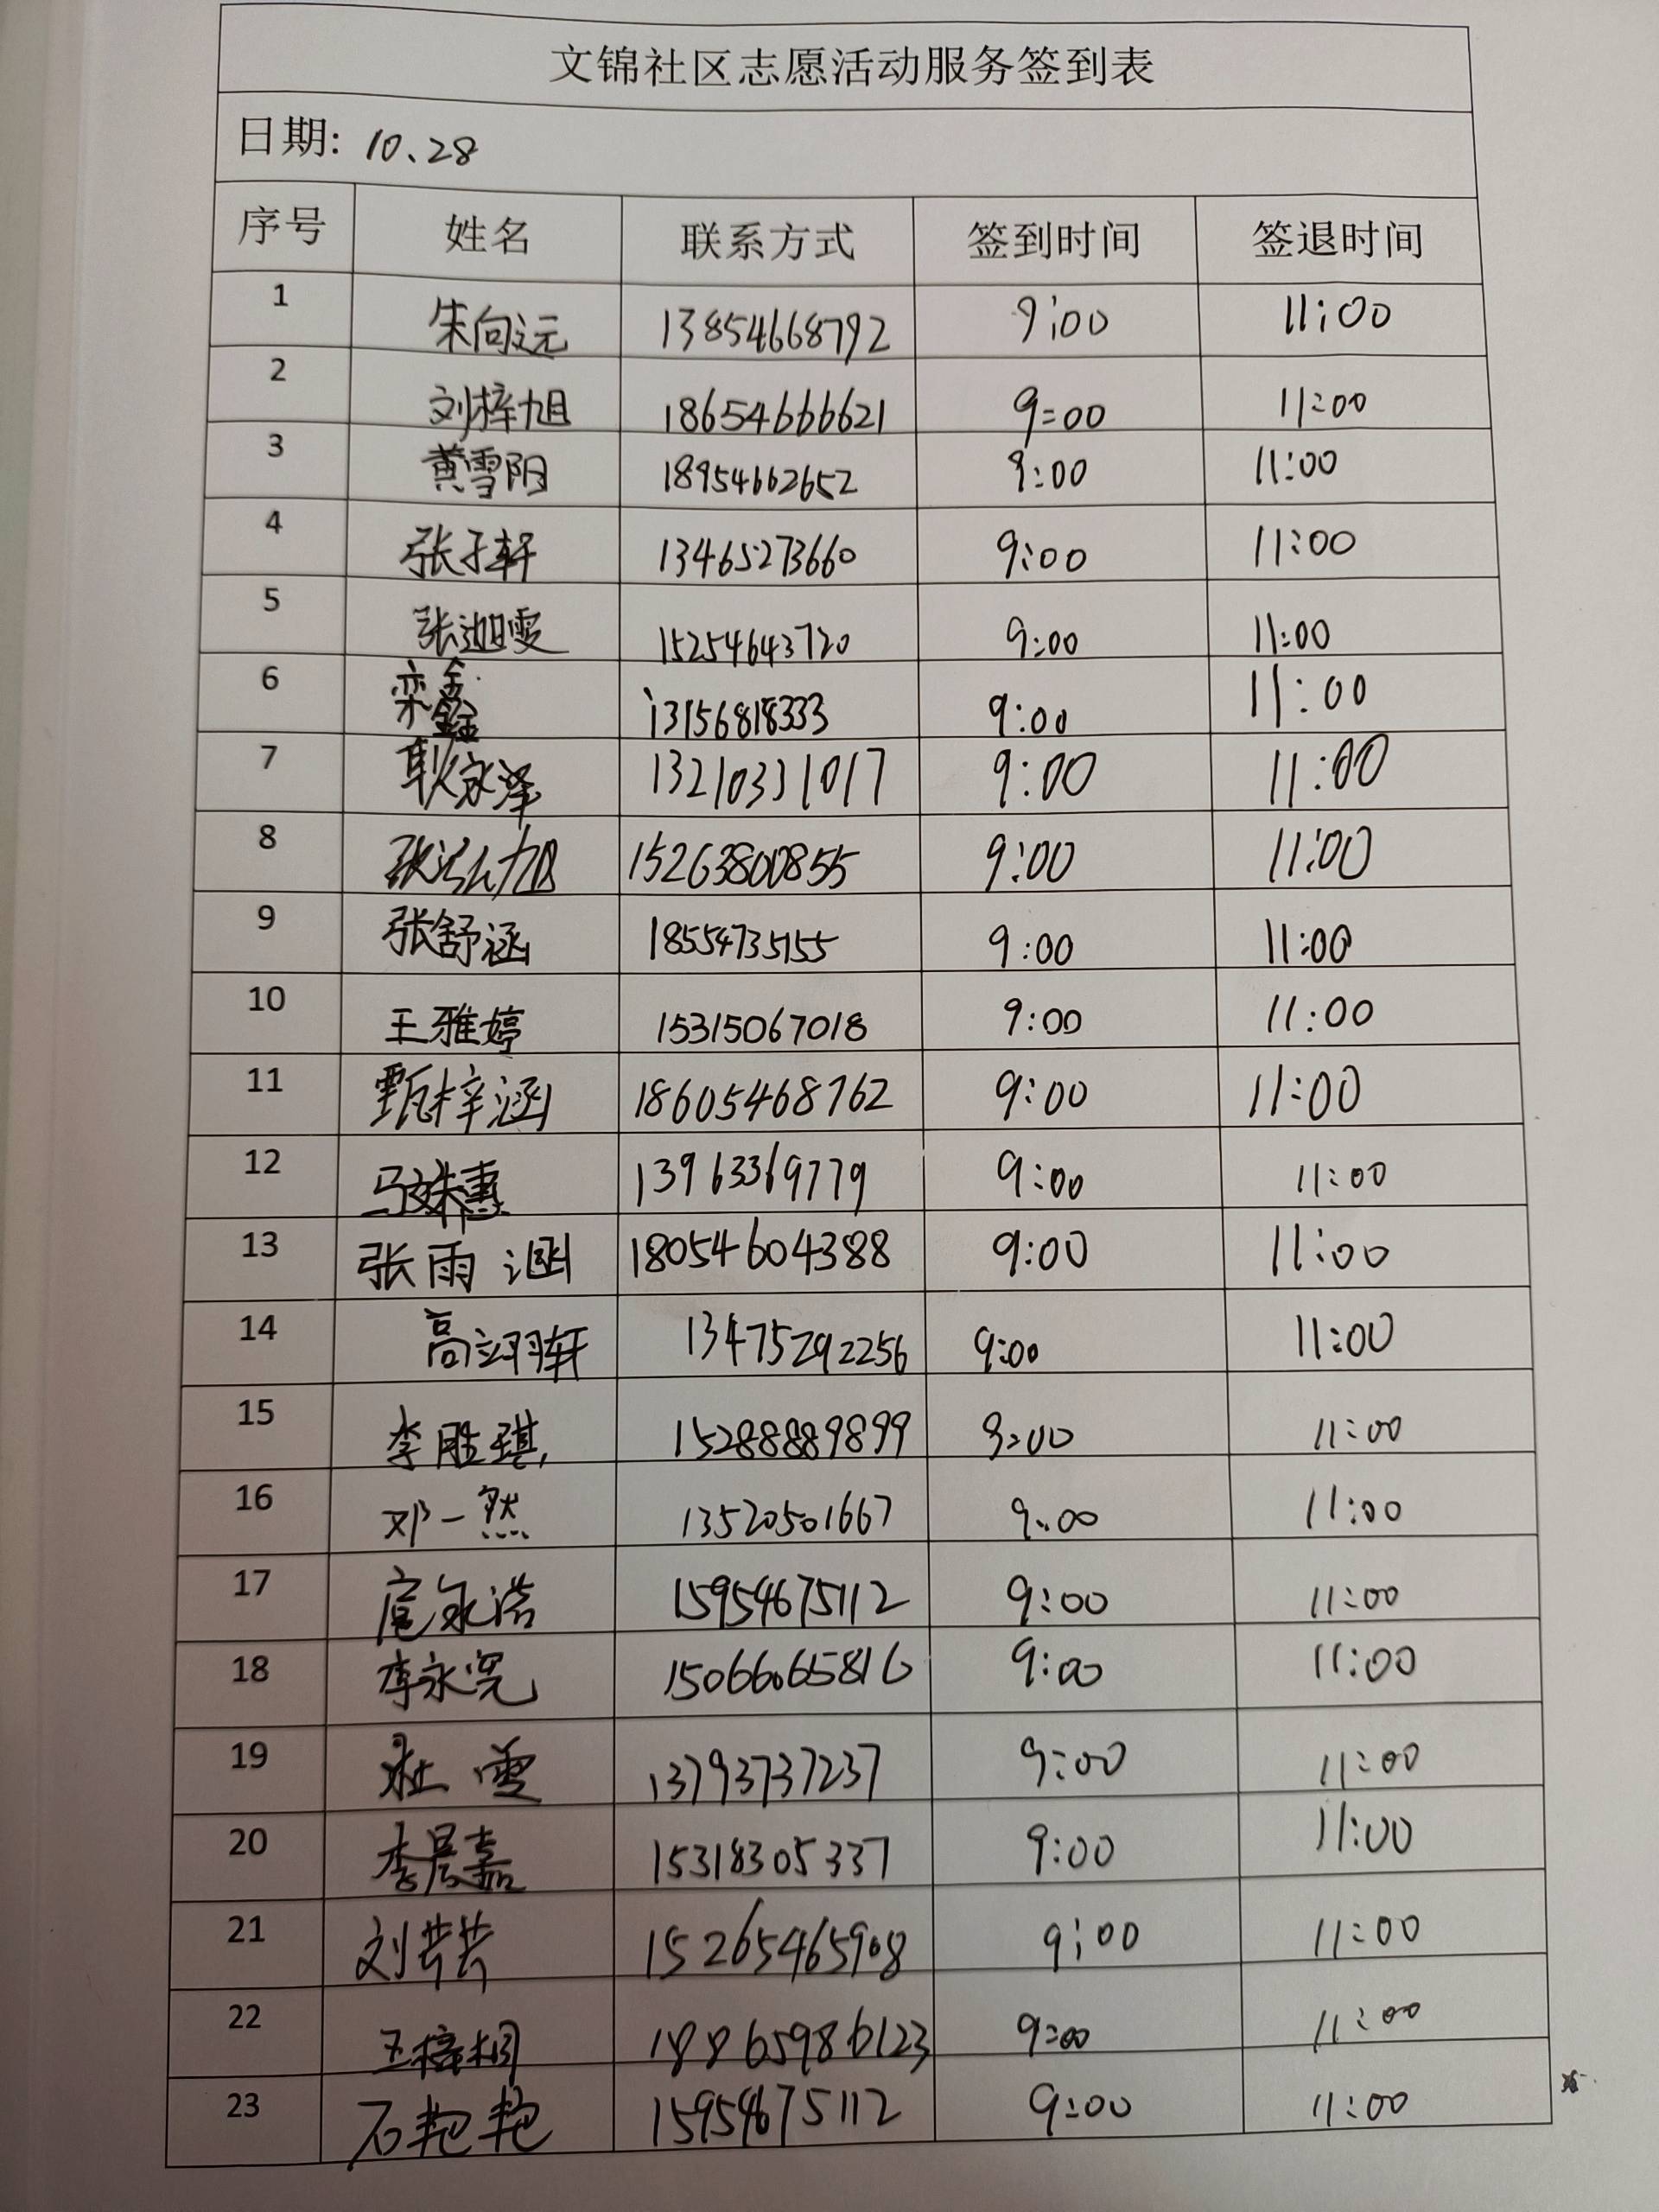 文锦社区志愿活动服务签到表
日期: 10.28
序号 姓名 联系方式 签到时间 签退时间
1 朱向远 13854668792 9:00 11:00
2 刘梓旭 18654666621 9:00 11:00
3 黄雪阳 18954662652 9:00 11:00
4 张子轩 13465273660 9:00 11:00
5 15254643720 9:00 11:00
6 栾鑫 13156818333 9:00 11:00
7 耿永泽 13210331017 9:00 11:00
8 张泓旭 15263800855 9:00 11:00
9 张舒涵 9:00 11:00
10 王雅婷 15315067018 9:00 11:00
11 甄梓涵 18605468762 9:00 11:00
12 13963369779 9:00 11:00
13 张雨涵 18054604388 9:00 11:00
14 高翊轩 13475292256 9:00 11:00
15 李胜琪 15288889899 9:00 11:00
16 邓一然 13520501667 9:00 11:00
17 扈永浩 15954675112 9:00 11:00
18 李永滉 15066065816 9:00 11:00
19 杜雯 13793737237 9:00 11:00
20 李晨嘉 15318305337 9:00 11:00
21 刘芸芸 15265465908 9:00 11:00
22 王梓桐 18865986123 9:00 11:00
23 石艳艳 15954675112 9:00 11:00